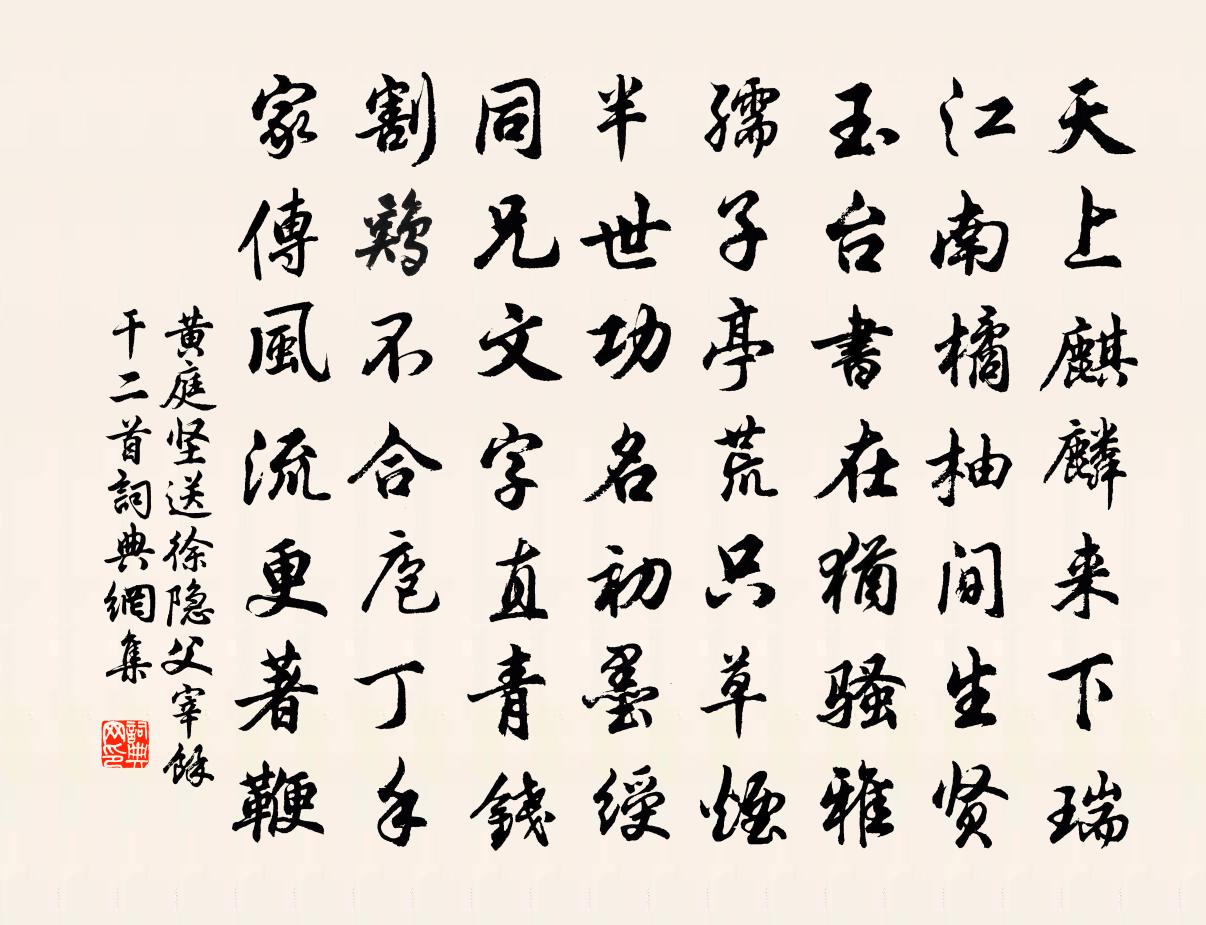 天上麒麟来下瑞
江南橘柚间生贤
玉台書在猶骚雅
孺子亭荒只草煙
半世功名初墨綬
同兄文字直青錢
割鷄不合庖丁手
家傳風流更著鞭
黄庭坚送徐隐父宰餘
干二首詞典網集
詞典
网印